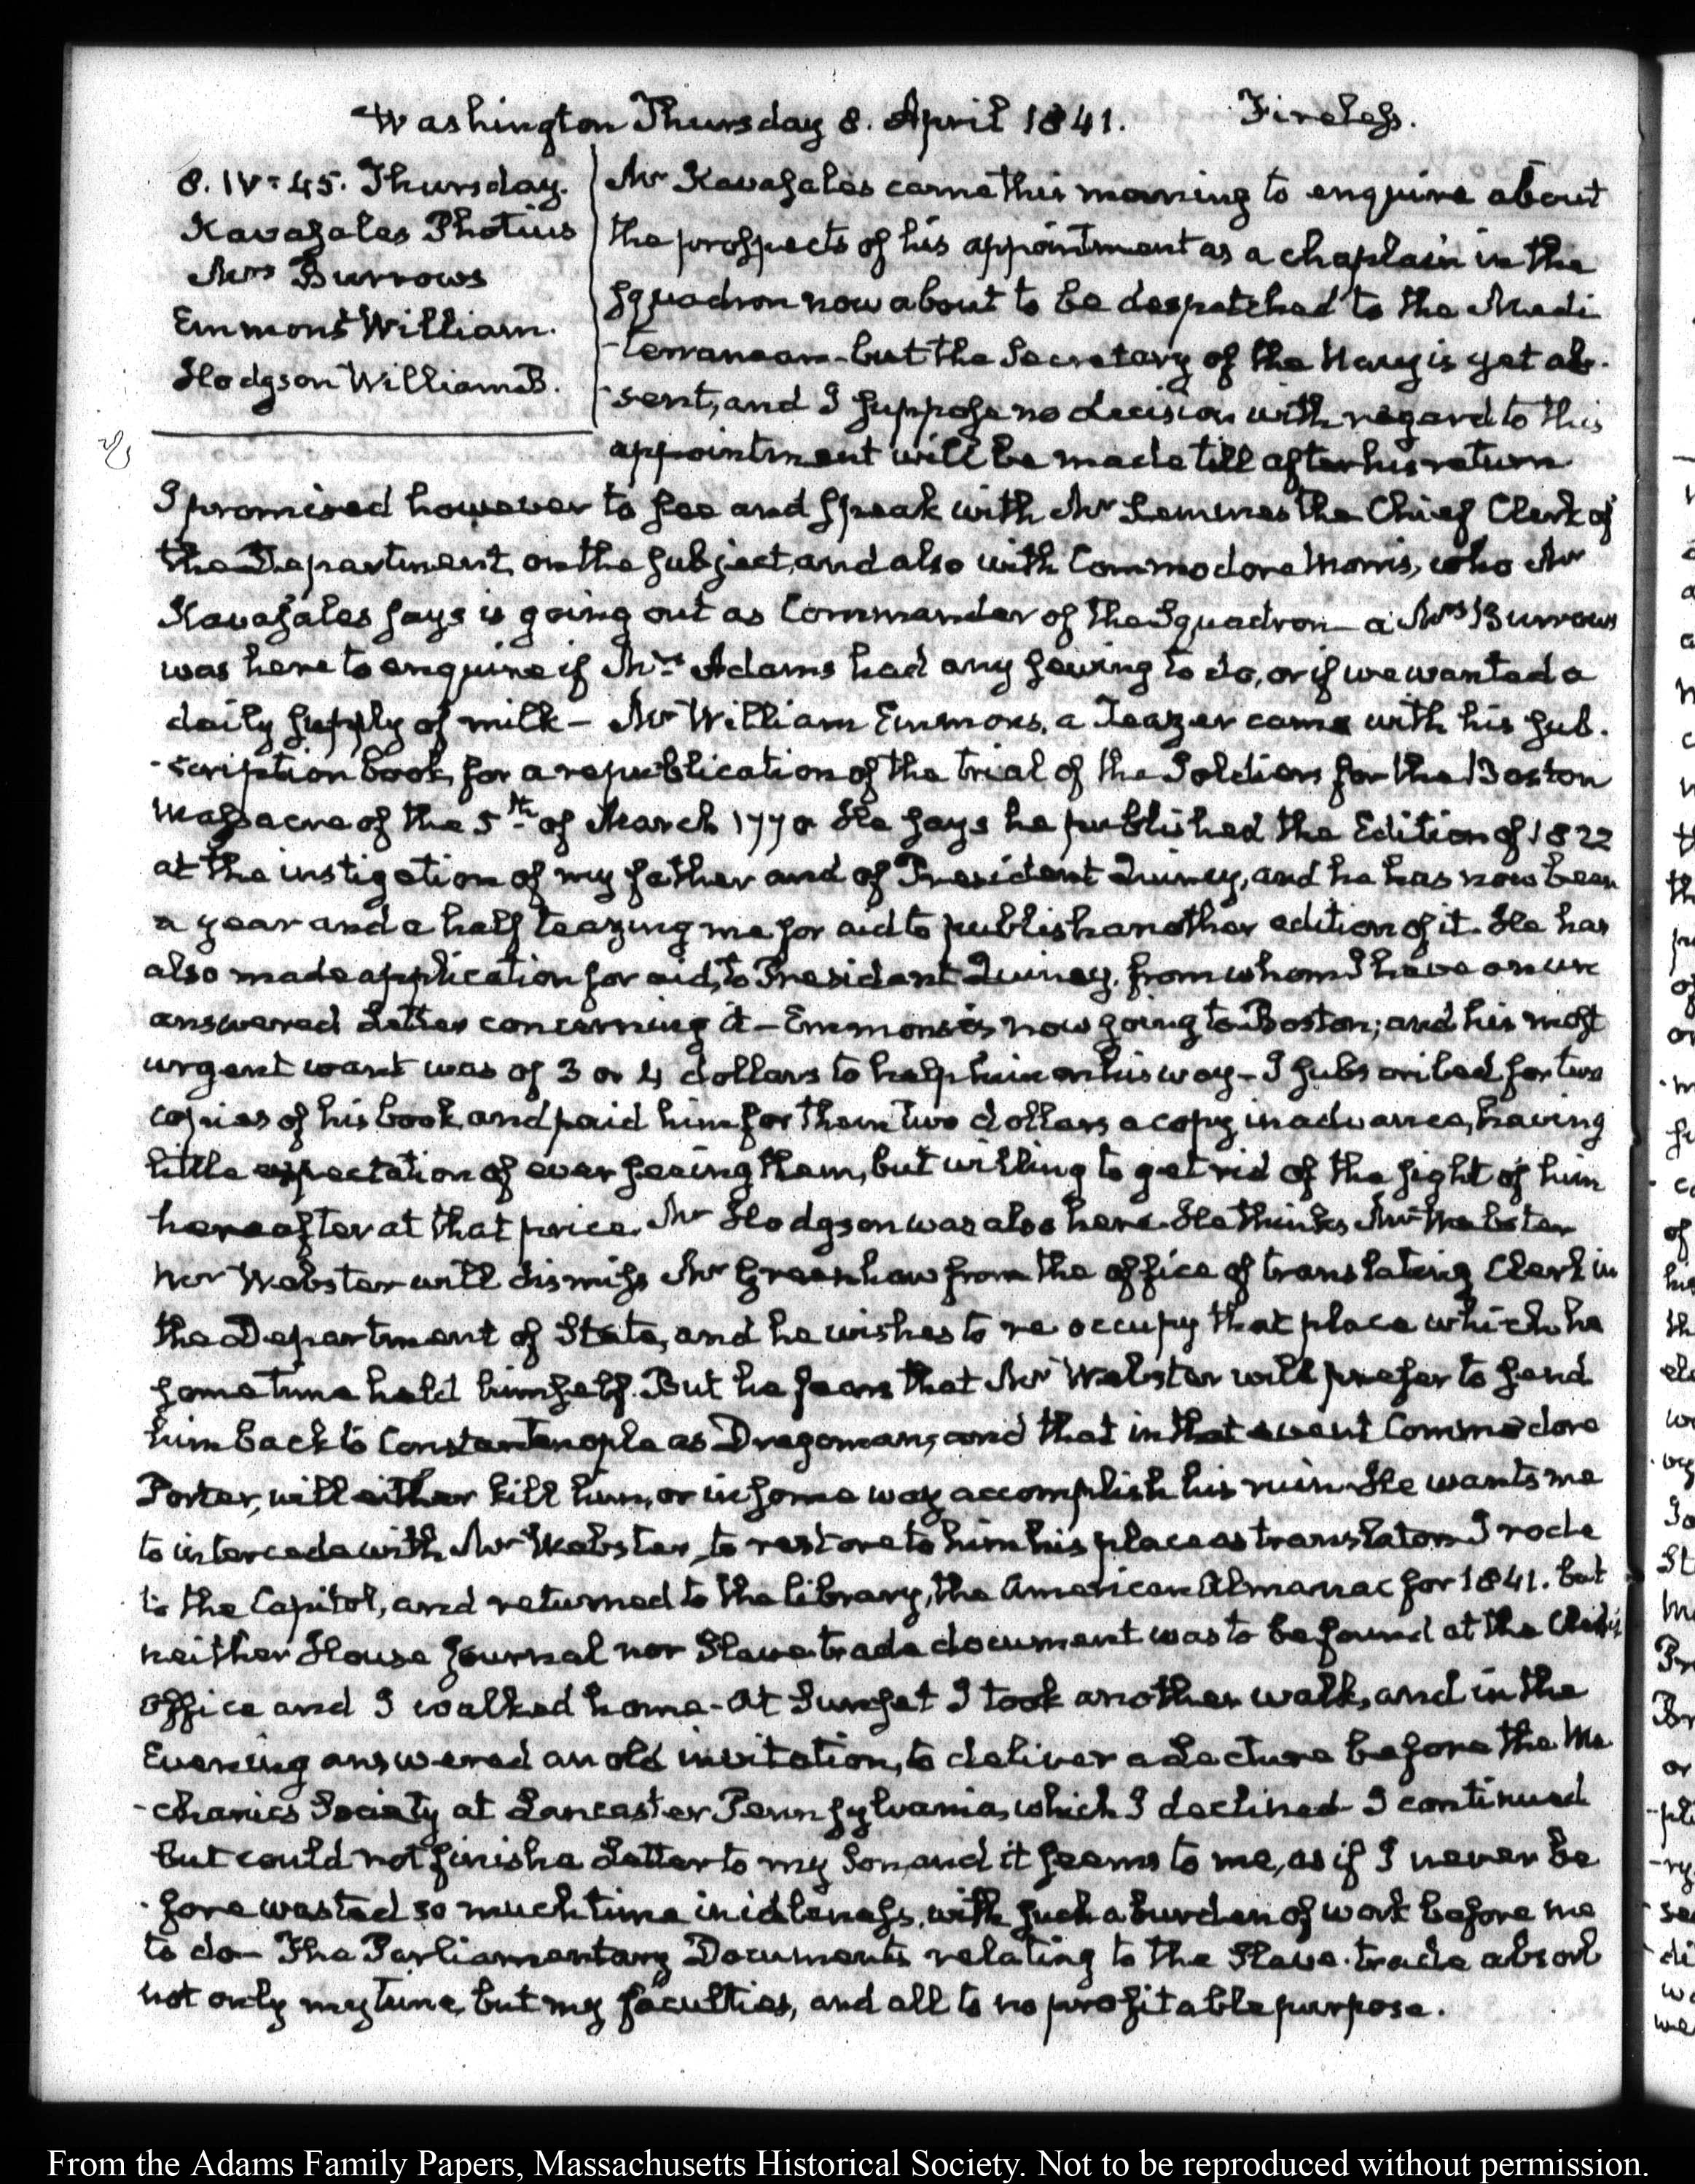 Washington Thursday 8. April 1841. Fireless.
8. IV: 45. Thursday.
Kavasales Photius
Mrs Burrows
Emmons William.
Hodgson William B.
Mr Kavasales came this morning to enquire about
the prospects of his appointment as a chaplain in the
squadron now about to be despatched to the Medi
-terranean - but the Secretary of the Navy is yet ab-
-sent, and I suppose no decision with regard to this
appointment will be made till after his return
I promised however to see and speak with Mr Semmes the Chief Clerk of
the Department, on the subject, and also with Commodore Morris, who Mr
Kavasales says is going out as Commander of the Squadron - a Mrs Burrows
was here to enquire if Mrs Adams had any sewing to do, or if we wanted a
daily supply of milk - Mr William Emmons, a Teazer came with his sub-
-scription book, for a republication of the trial of the Soldiers for the Boston
Massacre of the 5th of March 1770 He says he published the Edition of 1822
at the instigation of my father and of President Quincy, and he has now been
a year and a half teazing me for aid to publish another edition of it. He has
also made application for aid, to President Quincy, from whom I have an un
answered Letter concerning it - Emmons is now going to Boston; and his most
urgent want was of 3 or 4 dollars to help him on his way - I subscribed for two
copies of his book, and paid him for them two dollars a copy in advance, having
little expectation of ever seeing them, but willing to get rid of the sight of him
hereafter at that price. Mr Hodgson was also here. He thinks Mr Webster
Mr Webster will dismiss Mr Greenhow from the office of translating Clerk in
the Department of State, and he wishes to re occupy that place which he
sometime held himself. But he fears that Mr Webster will prefer to send
him back to Constantinople as Dragoman, and that in that event Commodore
Porter, will either kill him, or in some way accomplish his ruin. He wants me
to intercede with Mr Webster, to restore to him his place as translator. I rode
to the Capitol, and returned to the library, the American Almanac for 1841. but
neither House Journal nor Slave trade document was to be found at the Clerk's
Office and I walked home - At Sunset I took another walk, and in the
Evening answered an old invitation, to deliver a Lecture before the Me
-chanics Society at Lancaster Pennsylvania, which I declined - I continued
but could not finish a Letter to my Son, and it seems to me, as if I never be
-fore wasted so much time in idleness, with such a burden of work before me
to do - The Parliamentary Documents relating to the Slave-trade absorb
not only my time, but my faculties, and all to no profitable purpose.
From the Adams Family Papers, Massachusetts Historical Society. Not to be reproduced without permission.